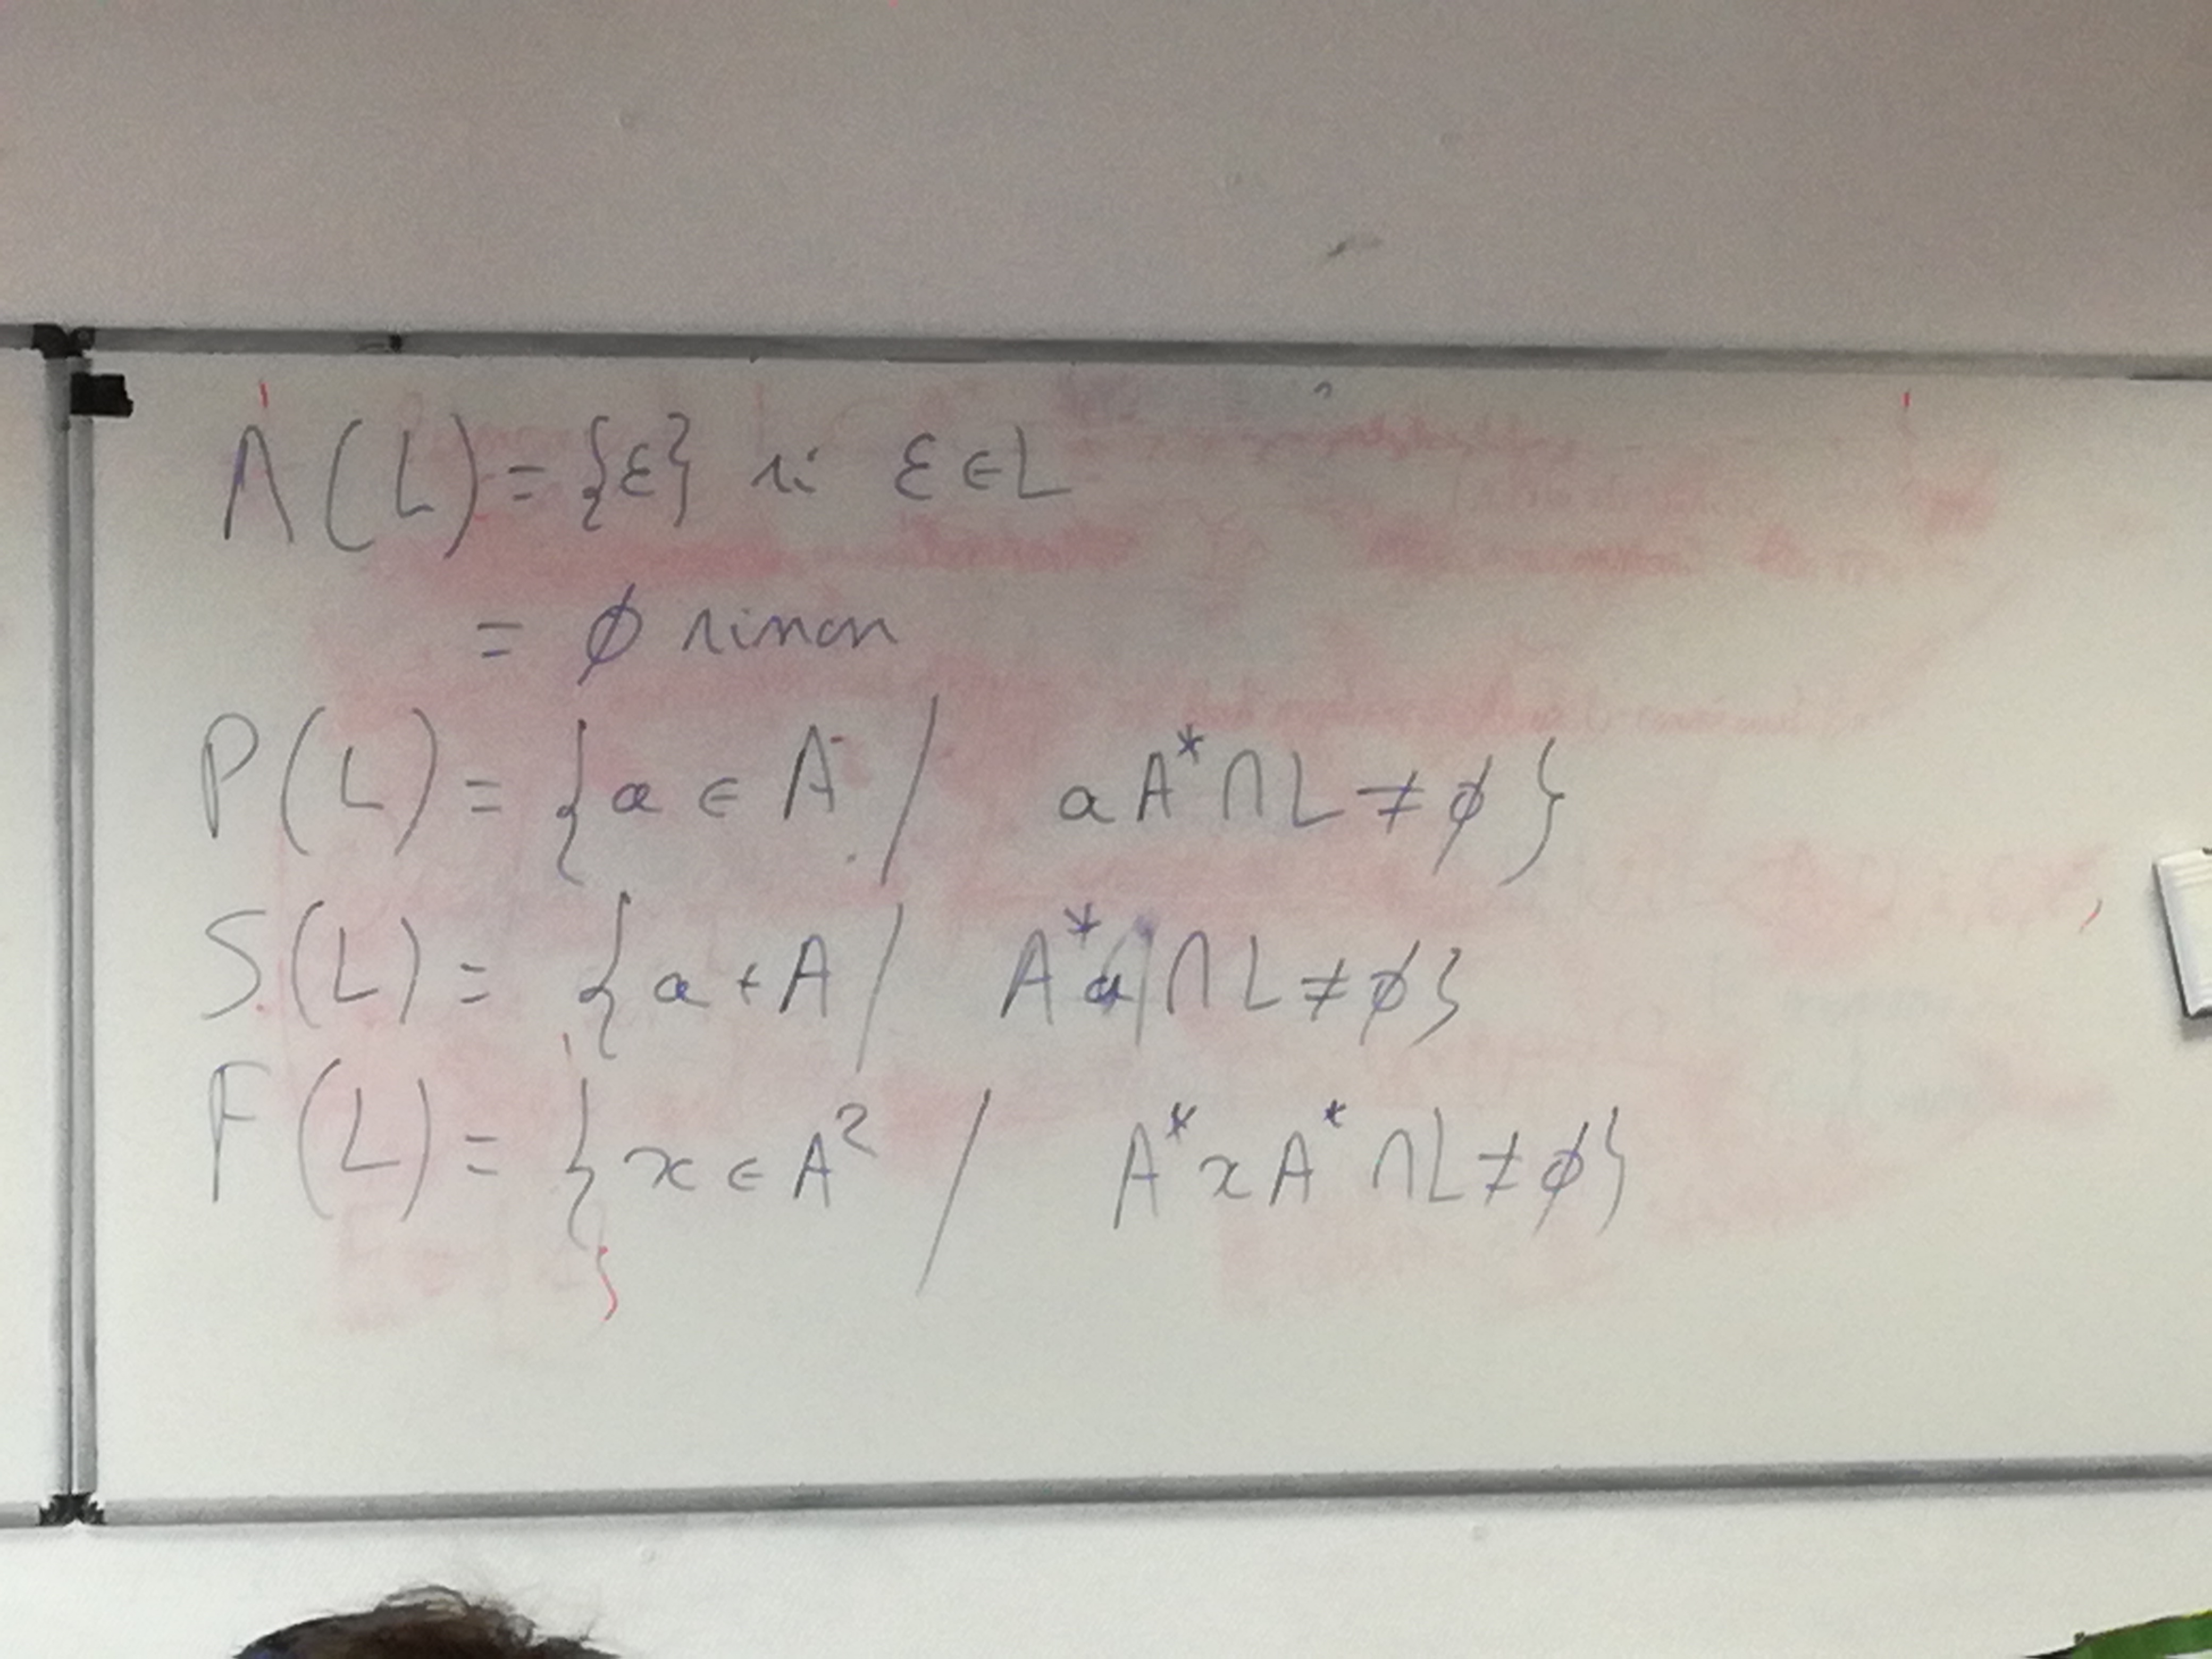 Λ(L) = {ε} si ε ∈ L
= ∅ sinon
P(L) = {a ∈ A / aA* ∩ L ≠ ∅}
S(L) = {a ∈ A / A*a ∩ L ≠ ∅}
F(L) = {x ∈ A² / A*xA* ∩ L ≠ ∅}